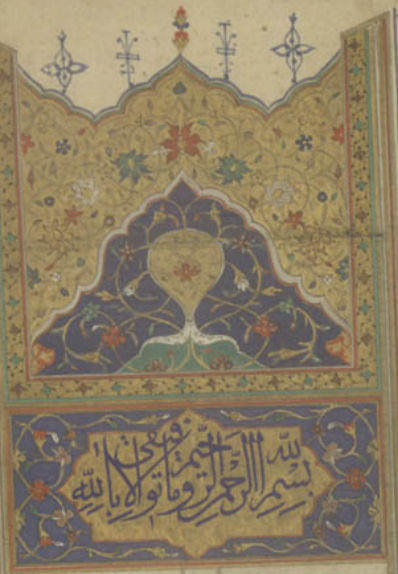 بِسْمِ اللّٰهِ الرَّحْمٰنِ الرَّحِيْمِ وَمَا تَوْفِيْقِيْ اِلَّا بِاللّٰهِ